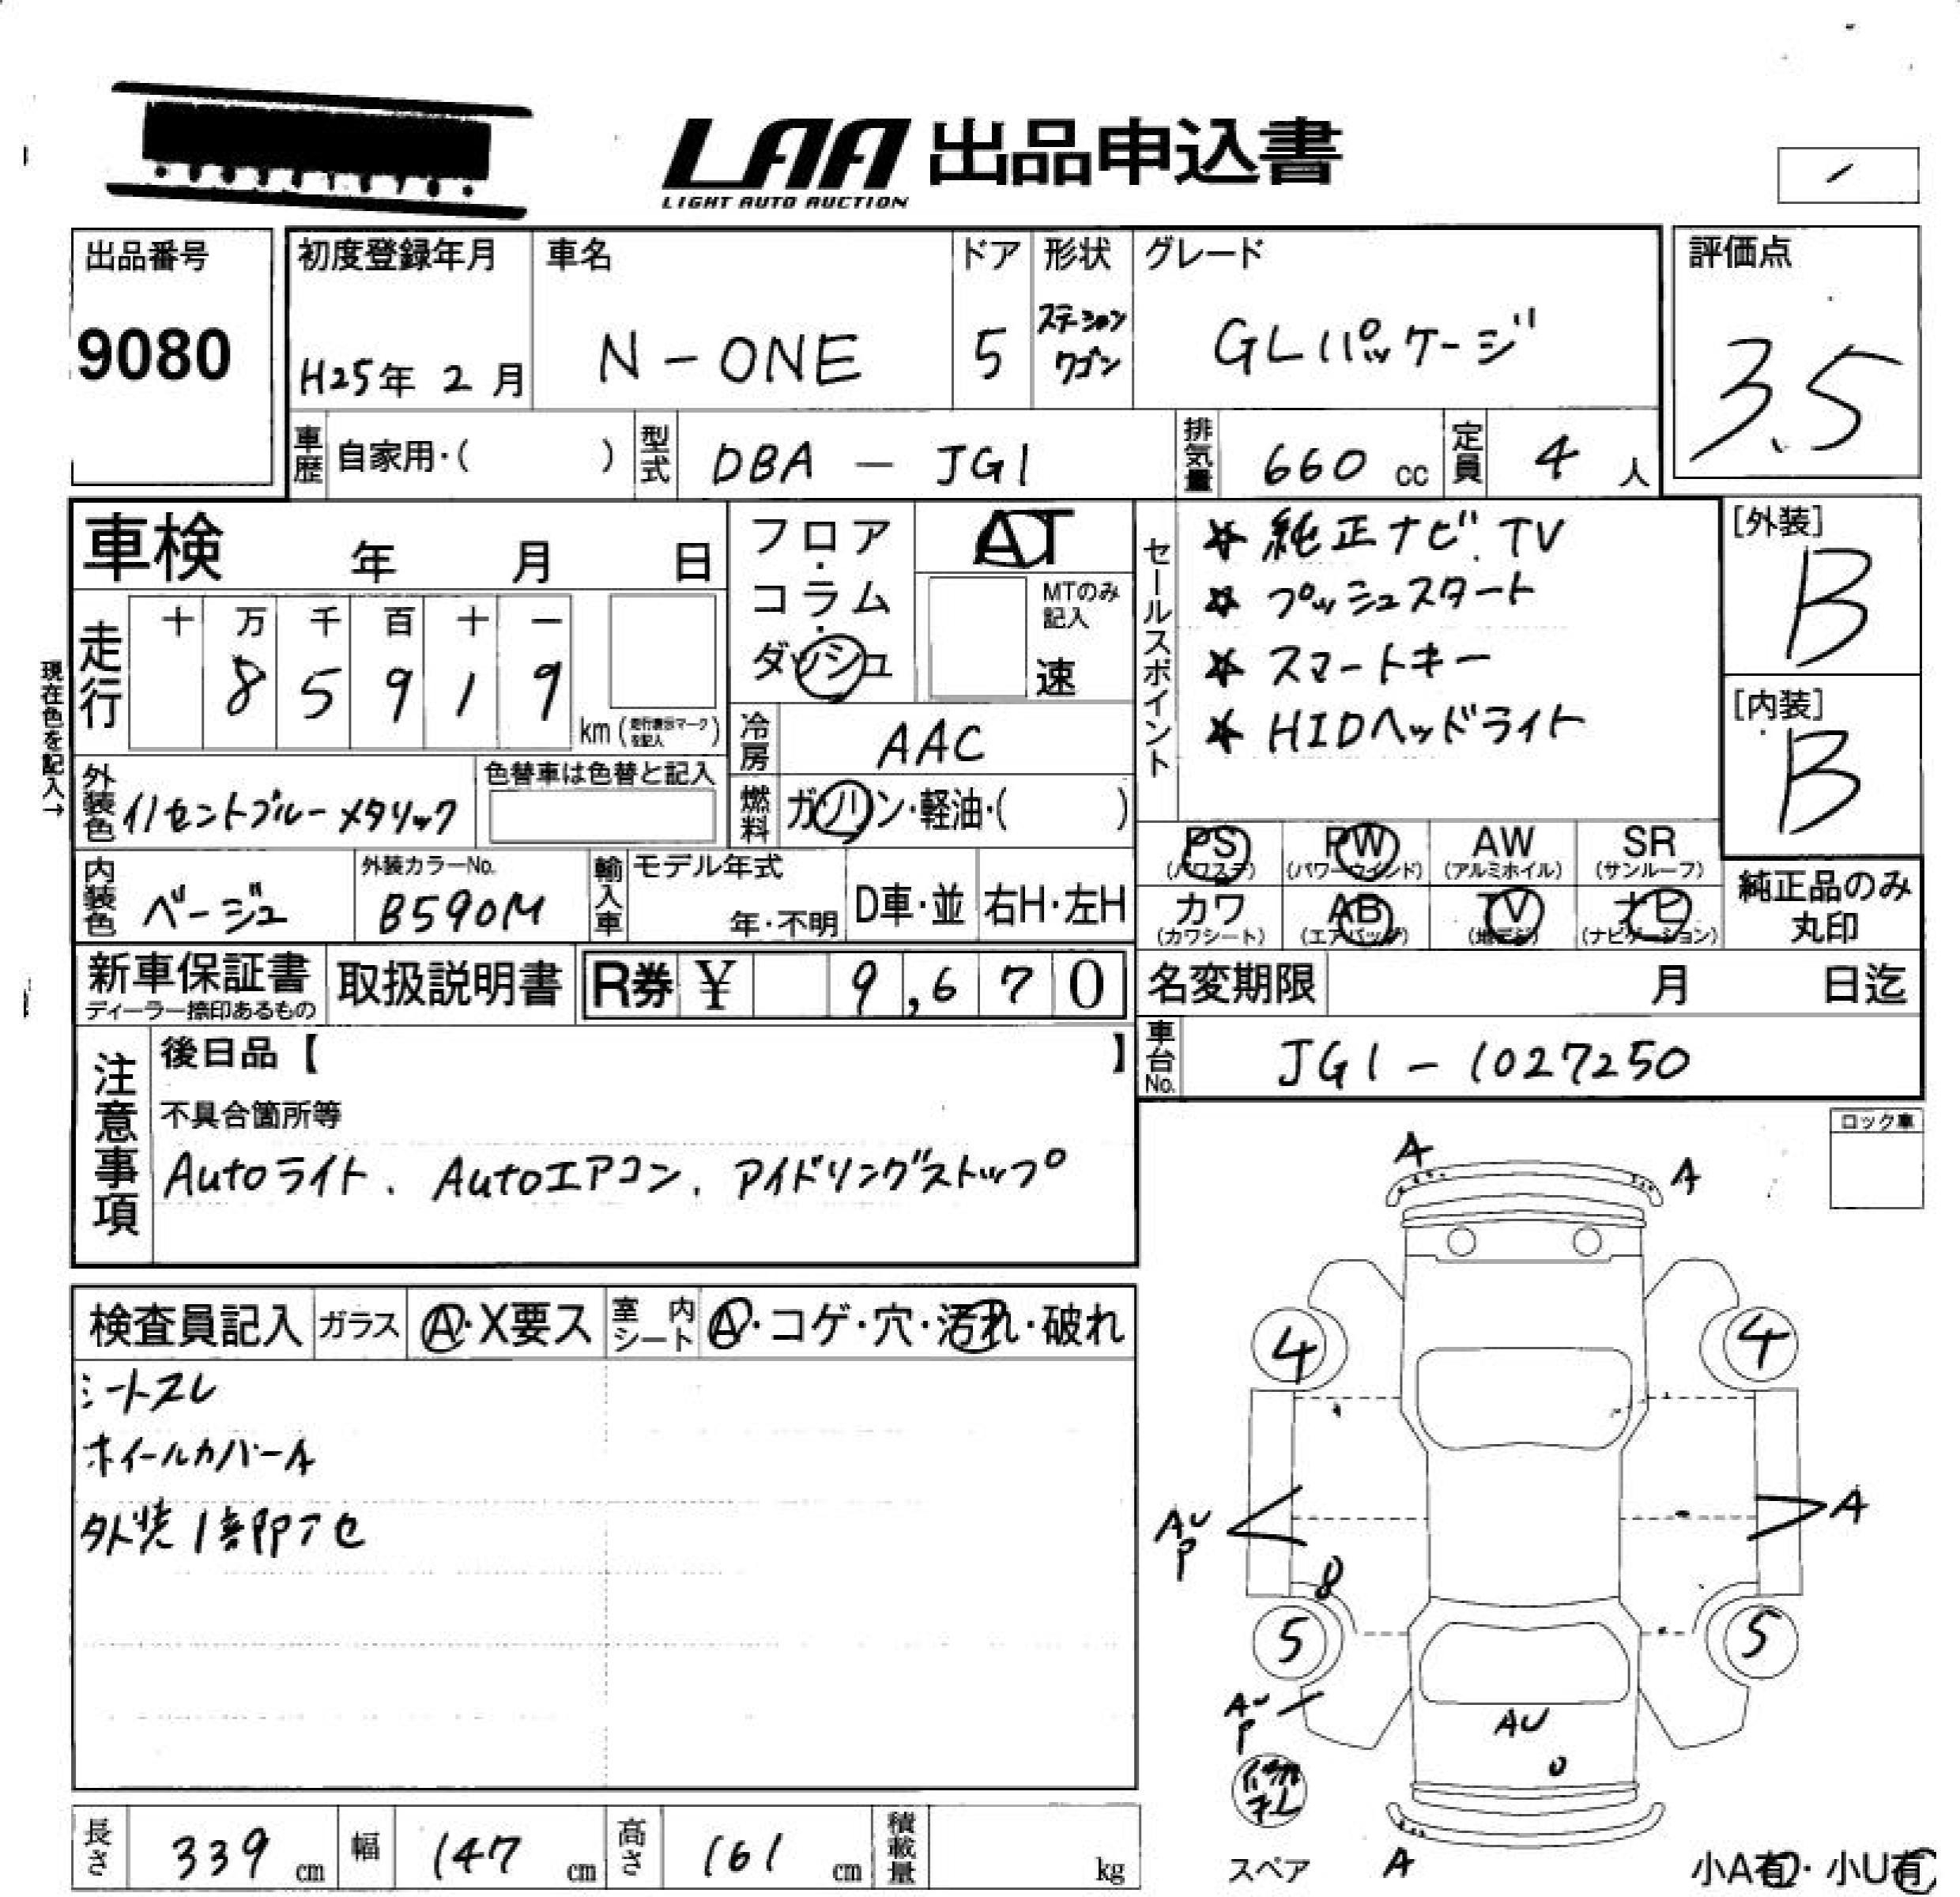 LAA 出品申込書
LIGHT AUTO AUCTION
出品番号
9080
初度登録年月
H25年 2月
車名
N-ONE
ドア
5
形状
ステーション
ワゴン
グレード
GLパッケージ
評価点
3.5
車歴 自家用・( )
型式 DBA - JG1
排気量 660 cc
定員 4 人
車検 年 月 日
走行
十 万 千 百 十 一
8 5 9 1 9
km (走行表示マークを記入)
現在色を記入→
フロア・コラム・ダッシュ
AT
MTのみ記入
速
冷房 AAC
燃料 ガソリン・軽油・( )
外装色 イノセントブルーメタリック
色替車は色替と記入
内装色 ベージュ
外装カラーNo.
B590M
輸入車 モデル年式
年・不明
D車・並 右H・左H
セールスポイント
☆ 純正ナビ.TV
☆ プッシュスタート
☆ スマートキー
☆ HIDヘッドライト
[外装]
B
[内装]
B
PS (パワステ) PW (パワーウインド) AW (アルミホイル) SR (サンルーフ)
カワ (カワシート) AB (エアバッグ) TV (地デジ) ナビ (ナビゲーション)
純正品のみ丸印
新車保証書
ディーラー捺印あるもの
取扱説明書
R券 ¥ 9,670
名変期限 月 日迄
車台No. JG1-1027250
注意事項
後日品【 】
不具合箇所等
Autoライト、Autoエアコン、アイドリングストップ
ロック車
検査員記入 ガラス A・X要ス 室内シート A・コゲ・穴・汚れ・破れ
シートスレ
ホイールカバーA
外装1部アセ
A
A
4
4
AU
P
A
8
5
5
AU
P
AU
U
スペア
A
小A有・小U有
長さ 339 cm
幅 147 cm
高さ 161 cm
積載量 kg